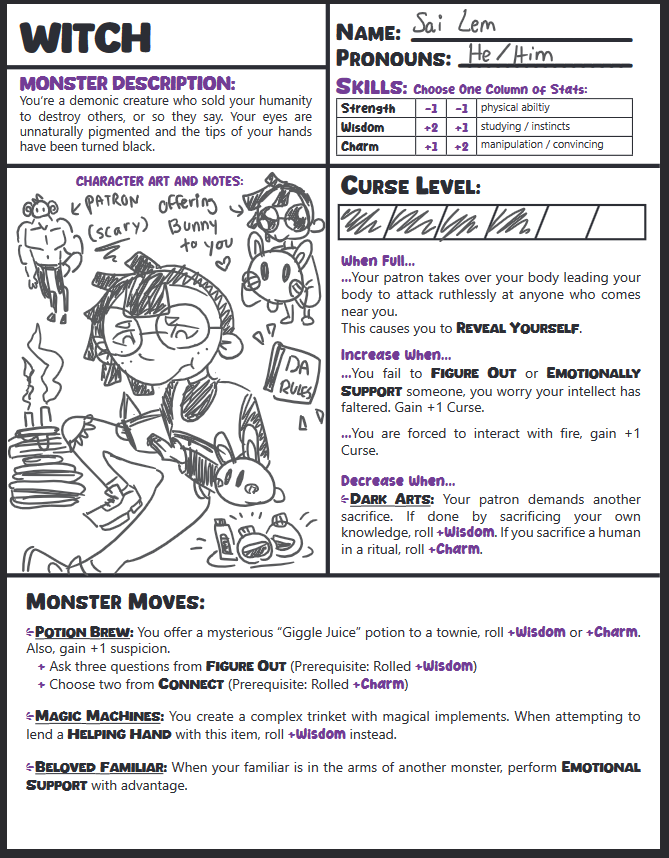 WITCH
NAME: Sai Lem
PRONOUNS: He/Him
MONSTER DESCRIPTION:
You're a demonic creature who sold your humanity
to destroy others, or so they say. Your eyes are
unnaturally pigmented and the tips of your hands
have been turned black.
SKILLS: Choose One Column of Stats:
Strength -1 -1 physical abiltiy
Wisdom +2 +1 studying / instincts
Charm +1 +2 manipulation / convincing
CHARACTER ART AND NOTES:
PATRON
(scary)
offering
Bunny
to you
DA
RULES
CURSE LEVEL:
When Full...
...Your patron takes over your body leading your
body to attack ruthlessly at anyone who comes
near you.
This causes you to REVEAL YOURSELF.
Increase When...
...You fail to FIGURE OUT or EMOTIONALLY
SUPPORT someone, you worry your intellect has
faltered. Gain +1 Curse.
...You are forced to interact with fire, gain +1
Curse.
Decrease When...
DARK ARTS: Your patron demands another
sacrifice. If done by sacrificing your own
knowledge, roll +Wisdom. If you sacrifice a human
in a ritual, roll +Charm.
MONSTER MOVES:
POTION BREW: You offer a mysterious "Giggle Juice" potion to a townie, roll +Wisdom or +Charm.
Also, gain +1 suspicion.
+ Ask three questions from FIGURE OUT (Prerequisite: Rolled +Wisdom)
+ Choose two from CONNECT (Prerequisite: Rolled +Charm)
MAGIC MACHINES: You create a complex trinket with magical implements. When attempting to
lend a HELPING HAND with this item, roll +Wisdom instead.
BELOVED FAMILIAR: When your familiar is in the arms of another monster, perform EMOTIONAL
SUPPORT with advantage.